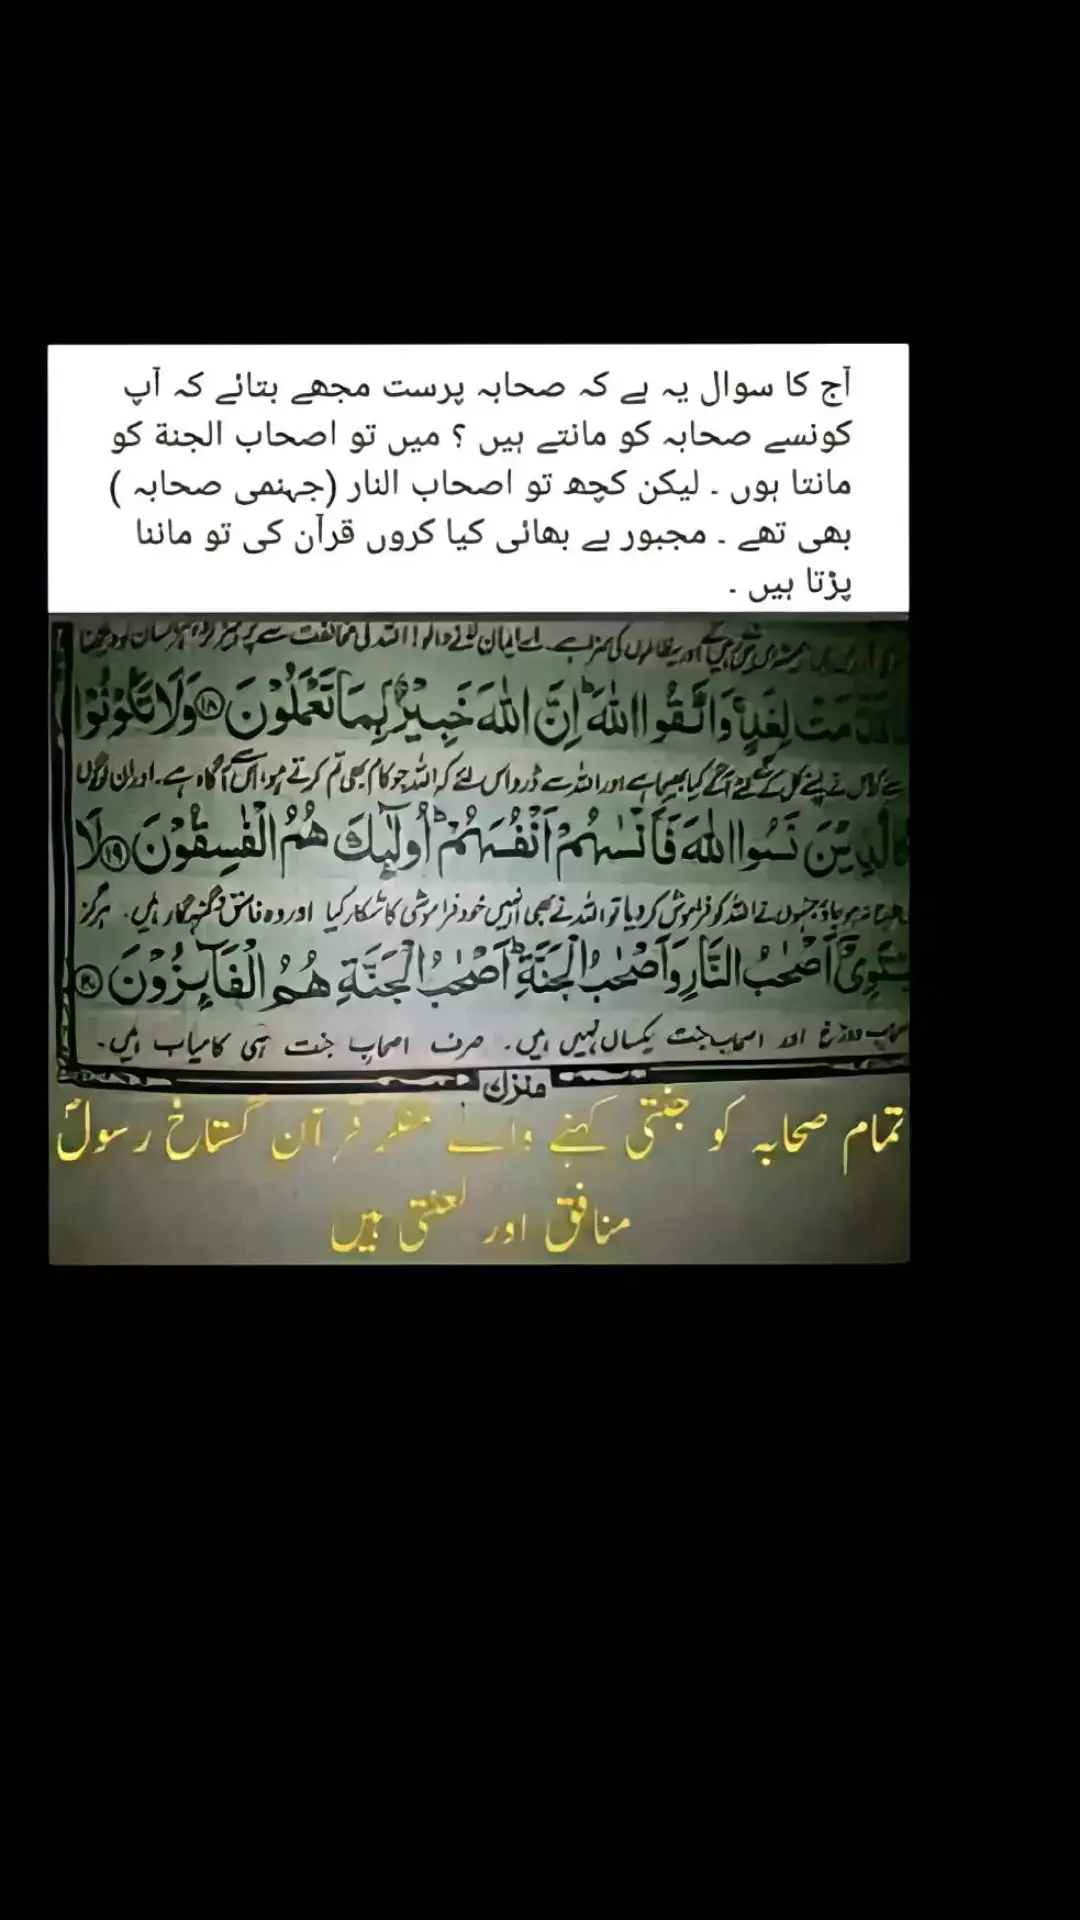 آج کا سوال یہ ہے کہ صحابہ پرست مجھے بتائے کہ آپ
کونسے صحابہ کو مانتے ہیں ؟ میں تو اصحاب الجنة کو
مانتا ہوں ۔ لیکن کچھ تو اصحاب النار (جہنمی صحابہ )
بھی تھے ۔ مجبور ہے بھائی کیا کروں قرآن کی تو ماننا
پڑتا ہیں ۔
اور یہ ظالموں کی سزا ہے۔ اے ایمان لانے والو! اللہ کی مخالفت سے
قَدَّمَتْ لِغَدٍ وَاتَّقُوا اللّٰهَ اِنَّ اللّٰهَ خَبِيْرٌۢ بِمَا تَعْمَلُوْنَ ۱۸ وَلَا تَكُوْنُوْا
نے اپنے کل کے لئے آگے کیا بھیجا ہے اور اللہ سے ڈرو اس لئے کہ اللہ جو کام بھی تم کرتے ہو، اس سے آگاہ ہے۔ اور ان لوگوں
كَالَّذِيْنَ نَسُوا اللّٰهَ فَاَنْسٰىهُمْ اَنْفُسَهُمْ اُولٰٓئِكَ هُمُ الْفٰسِقُوْنَ ۱۹ لَا
نہ ہو جاؤ جنہوں نے اللہ کو فراموش کر دیا تو اللہ نے بھی انہیں خود فراموشی کا شکار کیا اور وہ فاسق و گنہگار ہیں۔ ہرگز
يَسْتَوِيْٓ اَصْحٰبُ النَّارِ وَاَصْحٰبُ الْجَنَّةِ اَصْحٰبُ الْجَنَّةِ هُمُ الْفَآئِزُوْنَ ۲۰
اصحاب دوزخ اور اصحاب جنت یکساں نہیں ہیں۔ صرف اصحاب جنت ہی کامیاب ہیں۔
منزل
تمام صحابہ کو جنتی کہنے والے منکر قرآن گستاخ رسولؐ
منافق اور لعنتی ہیں